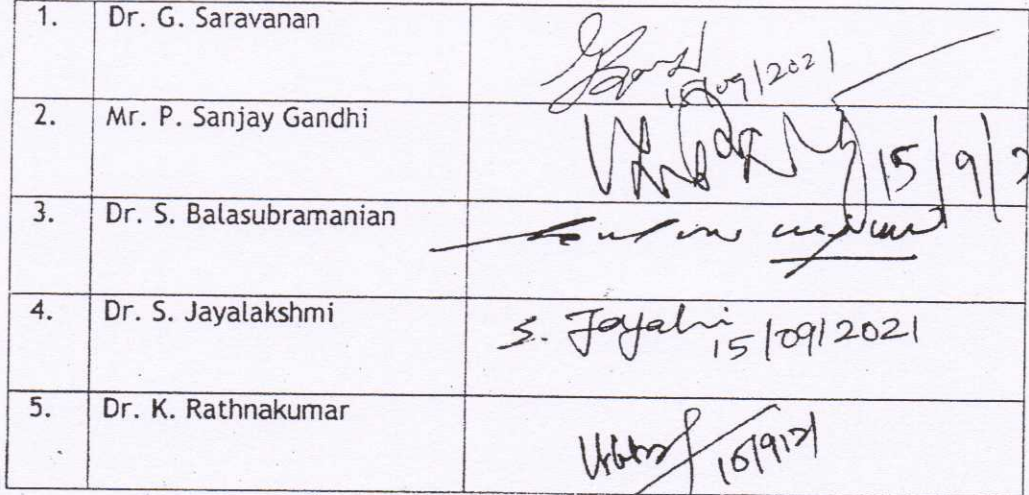 1. Dr. G. Saravanan
15/09/2021
2. Mr. P. Sanjay Gandhi
15/9/2
3. Dr. S. Balasubramanian
4. Dr. S. Jayalakshmi
S. Jayalmi 15/09/2021
5. Dr. K. Rathnakumar
15/9/21